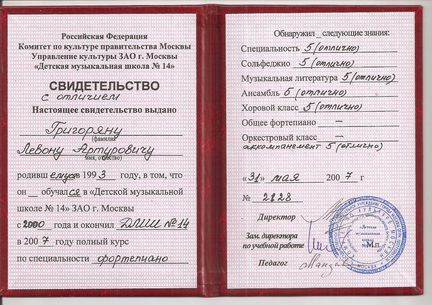 Российская Федерация
Комитет по культуре правительства Москвы
Управление культуры ЗАО г. Москвы
«Детская музыкальная школа № 14»
СВИДЕТЕЛЬСТВО
с отличием
Настоящее свидетельство выдано
Григоряну
(фамилия)
Левону Артуровичу
имя, отчество)
родивш емуся 1993 году, в том, что
он обучался в «Детской музыкальной
школе № 14» ЗАО г. Москвы
с 2000 года и окончил ДМШ №14
в 2007 году полный курс
по специальности фортепиано
Обнаружил следующие знания:
Специальность 5 (отлично)
Сольфеджио 5 (отлично)
Музыкальная литература 5 (отлично)
Ансамбль 5 (отлично)
Хоровой класс 5 (отлично)
Общее фортепиано —
Оркестровый класс —
аккомпанемент 5 (отлично)
«31» мая 2007 г
№ 2128
Директор
Зам. директора
по учебной работе
М.п.
Педагог